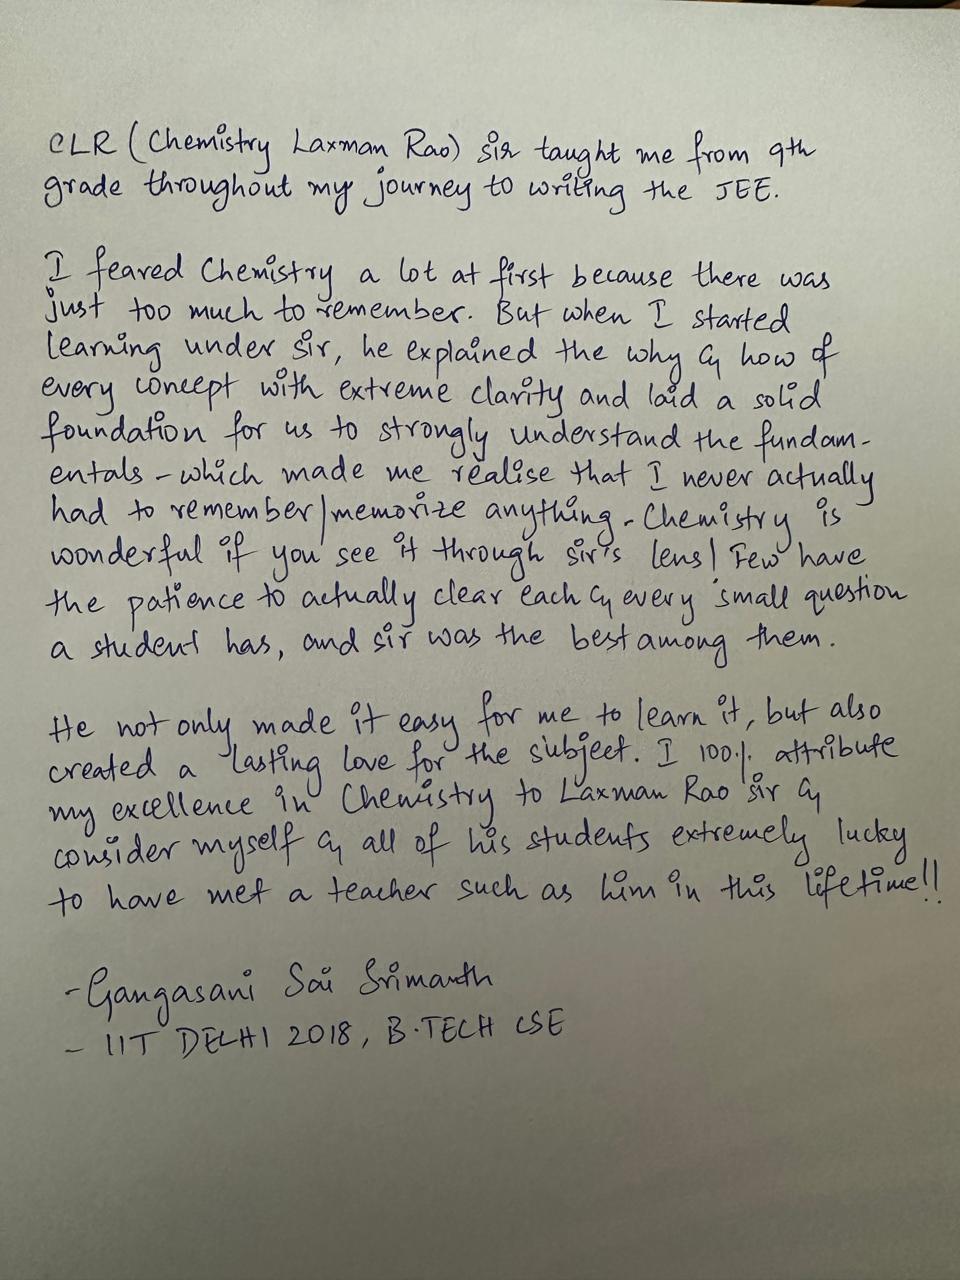 CLR (Chemistry Laxman Rao) sir taught me from 9th
grade throughout my journey to writing the JEE.
I feared Chemistry a lot at first because there was
just too much to remember. But when I started
learning under sir, he explained the why & how of
every concept with extreme clarity and laid a solid
foundation for us to strongly understand the fundam-
entals - which made me realise that I never actually
had to remember/memorize anything. Chemistry is
wonderful if you see it through sir's lens! Few have
the patience to actually clear each & every small question
a student has, and sir was the best among them.
He not only made it easy for me to learn it, but also
created a lasting love for the subject. I 100% attribute
my excellence in Chemistry to Laxman Rao sir &
consider myself & all of his students extremely lucky
to have met a teacher such as him in this lifetime!!
- Gangasani Sai Srimanth
- IIT DELHI 2018, B.TECH CSE